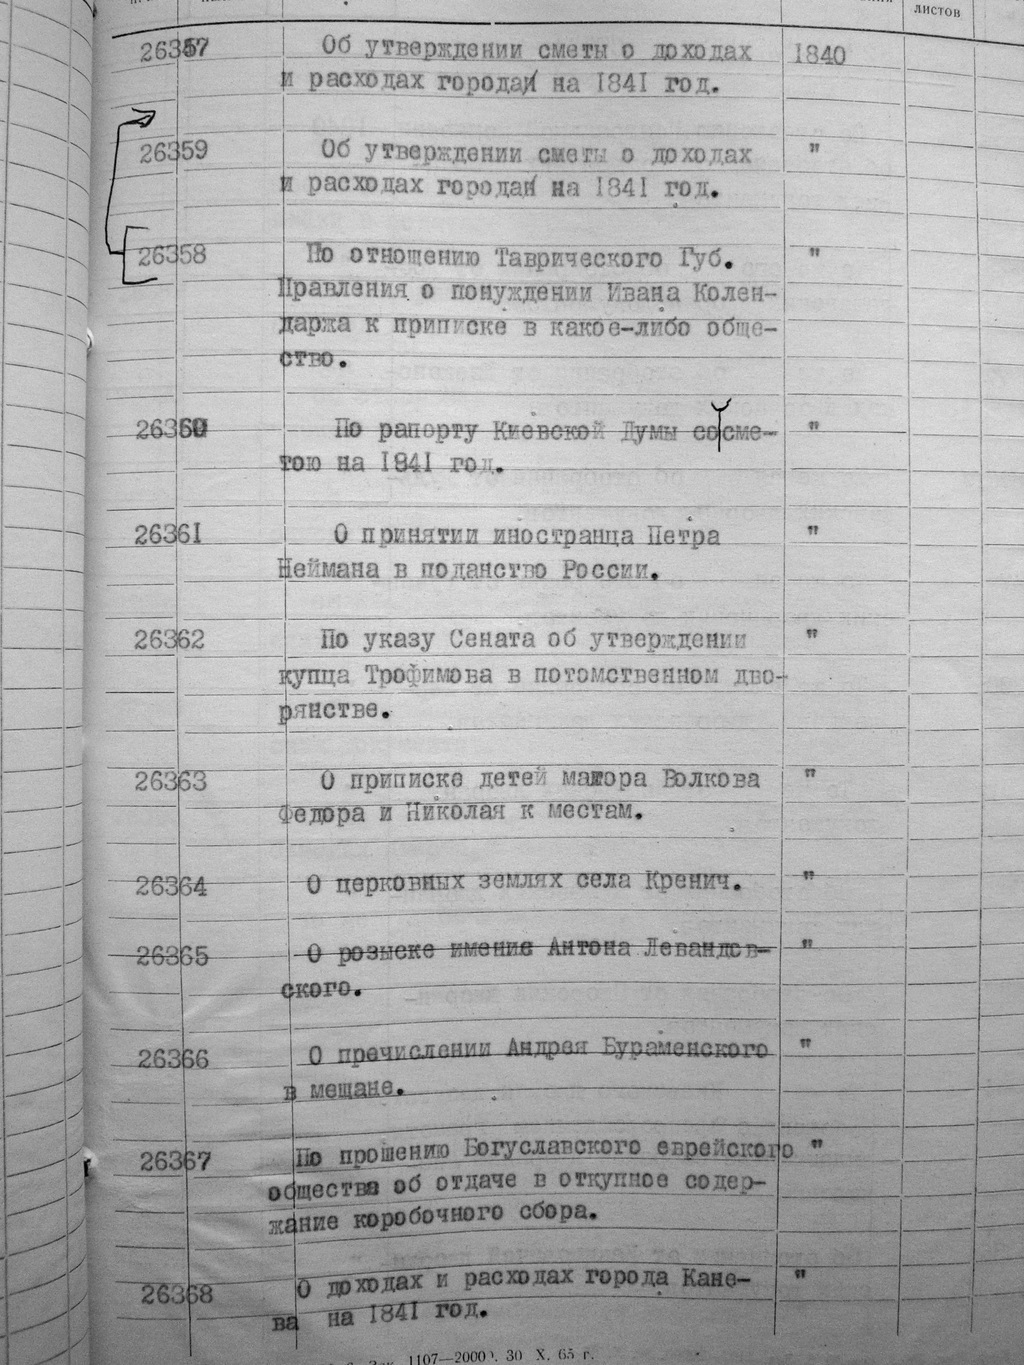 листов
26357 Об утверждении сметы о доходах 1840
и расходах города на 1841 год.
26359 Об утверждении сметы о доходах "
и расходах города на 1841 год.
26358 По отношению Таврического Губ. "
Правления о понуждении Ивана Колен-
даржа к приписке в какое-либо обще-
ство.
26360 По рапорту Киевской Думы со сме- "
тою на 1841 год.
26361 О принятии иностранца Петра "
Неймана в поданство России.
26362 По указу Сената об утверждении "
купца Трофимова в потомственном дво-
рянстве.
26363 О приписке детей майора Волкова "
Федора и Николая к местам.
26364 О церковных землях села Кренич. "
26365 О розыске имения Антона Левандов- "
ского.
26366 О пречислении Андрея Бураменского "
в мещане.
26367 По прошению Богуславского еврейского "
общества об отдаче в откупное содер-
жание коробочного сбора.
26368 О доходах и расходах города Кане- "
ва на 1841 год.
1107—2000. 30 X. 65 г.